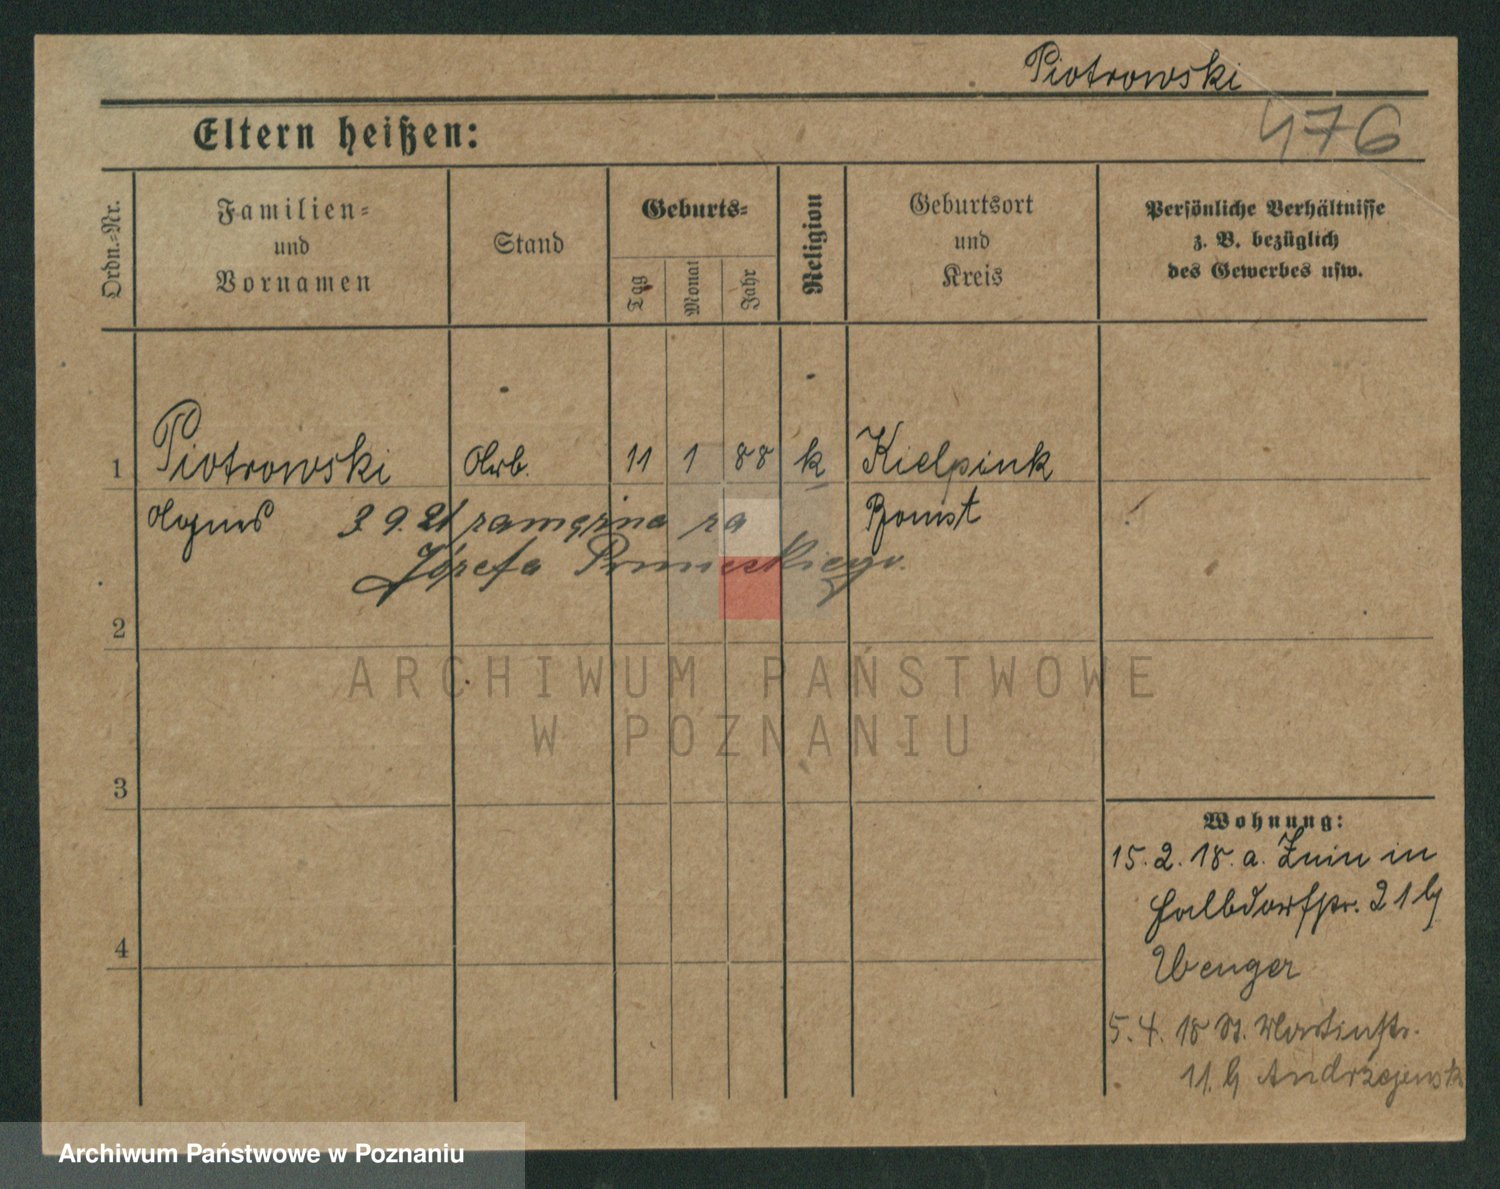 Piotrowski
476
Eltern heißen:
Ordn.-Nr.
Familien-
und
Vornamen
Stand
Geburts-
Tag
Monat
Jahr
Religion
Geburtsort
und
Kreis
Persönliche Verhältnisse
z. B. bezüglich
des Gewerbes usw.
1 Piotrowski Arb. 11 1 88 k Kielpink
Agnes 3 9. 21 zamężna za Bomst
Józefa
2
ARCHIWUM PAŃSTWOWE
W POZNANIU
3
Wohnung:
15. 2. 18. a. Znin in
Halbdorfstr. 21 b/
Wenger
4
5. 4. 18 St. Martinstr.
11. b/ Andrzejewsk
Archiwum Państwowe w Poznaniu